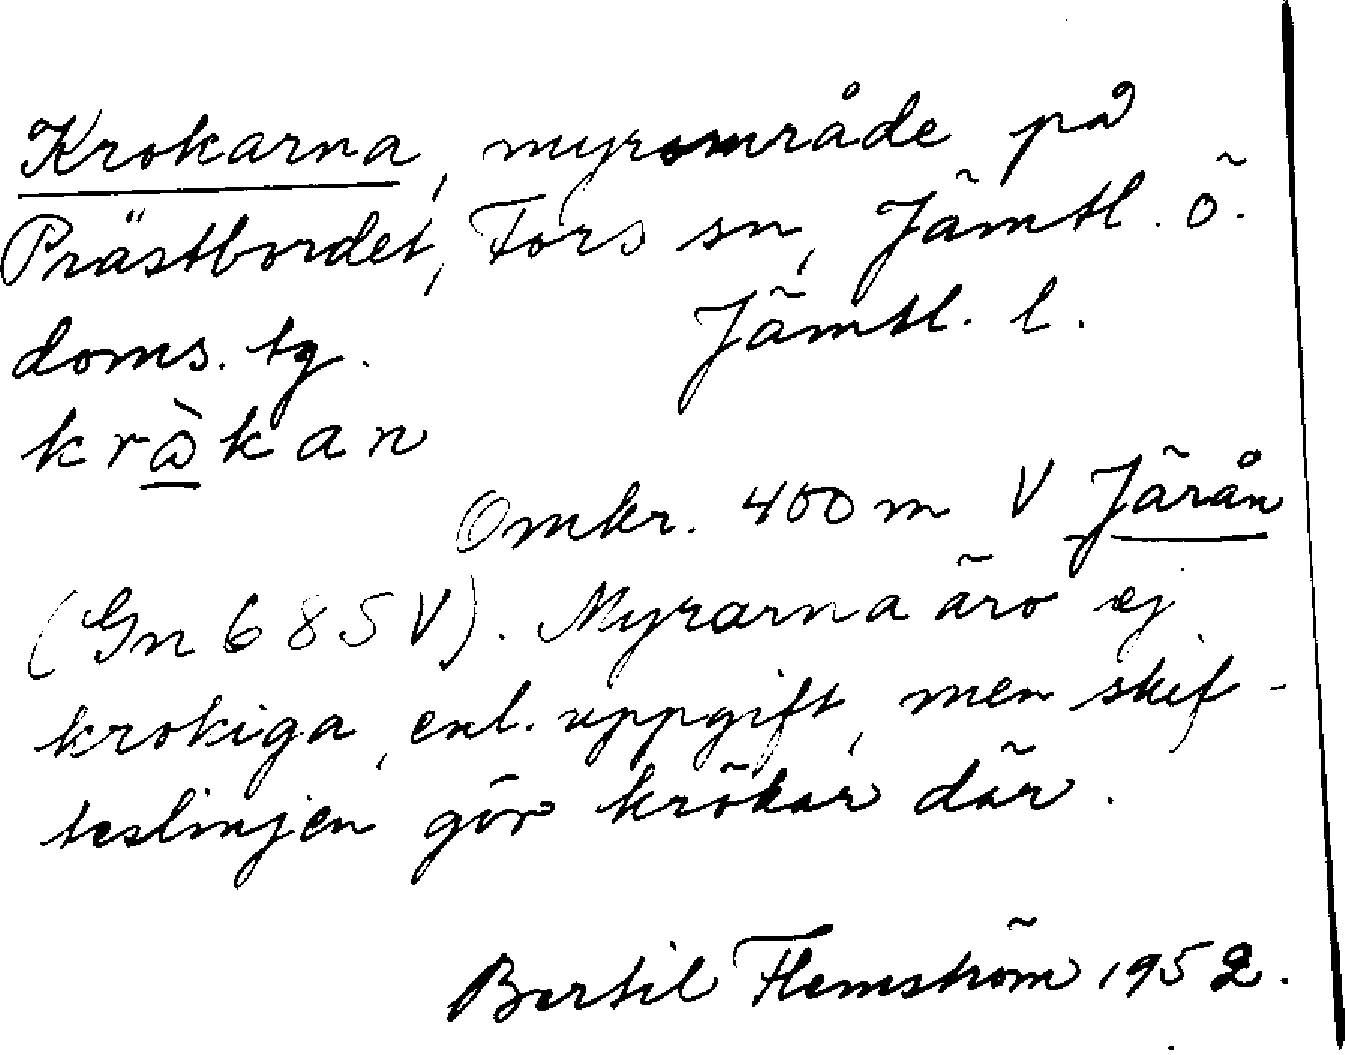 Krokarna, myrområde på
Prästbordet, Fors sn, Jämtl. ö.
doms. tg. Jämtl. l.
kròkan
Omkr. 400 m V Järån
(Gn 685 V). Myrarna äro ej
krokiga, enl. uppgift, men skif-
teslinjen gör krökar där.
Bertil Flemström 1952.